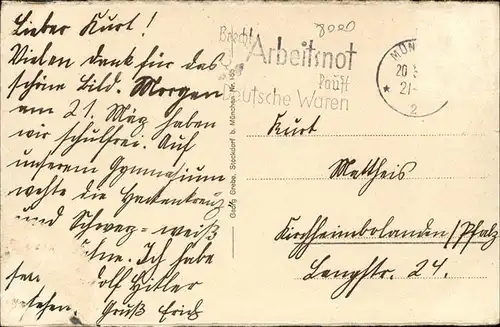 Lieber Kurt!
Vielen Dank für das
schöne Bild. Morgen
am 21. März haben
wir schulfrei. Auf
unserem Gymnasium
wehte die Hackenkreuz
und Schwarz-weiß
Ich habe
Hitler
Gruß Erich
8000
Brecht
Arbeitsnot
kauft
Deutsche Waren
MÜN
20.
21-
* 2
Georg Grebe, Stockdorf b. München Nr.
Kurt
Mattheis
Kirchheimbolanden/Pfalz
Langstr. 24.